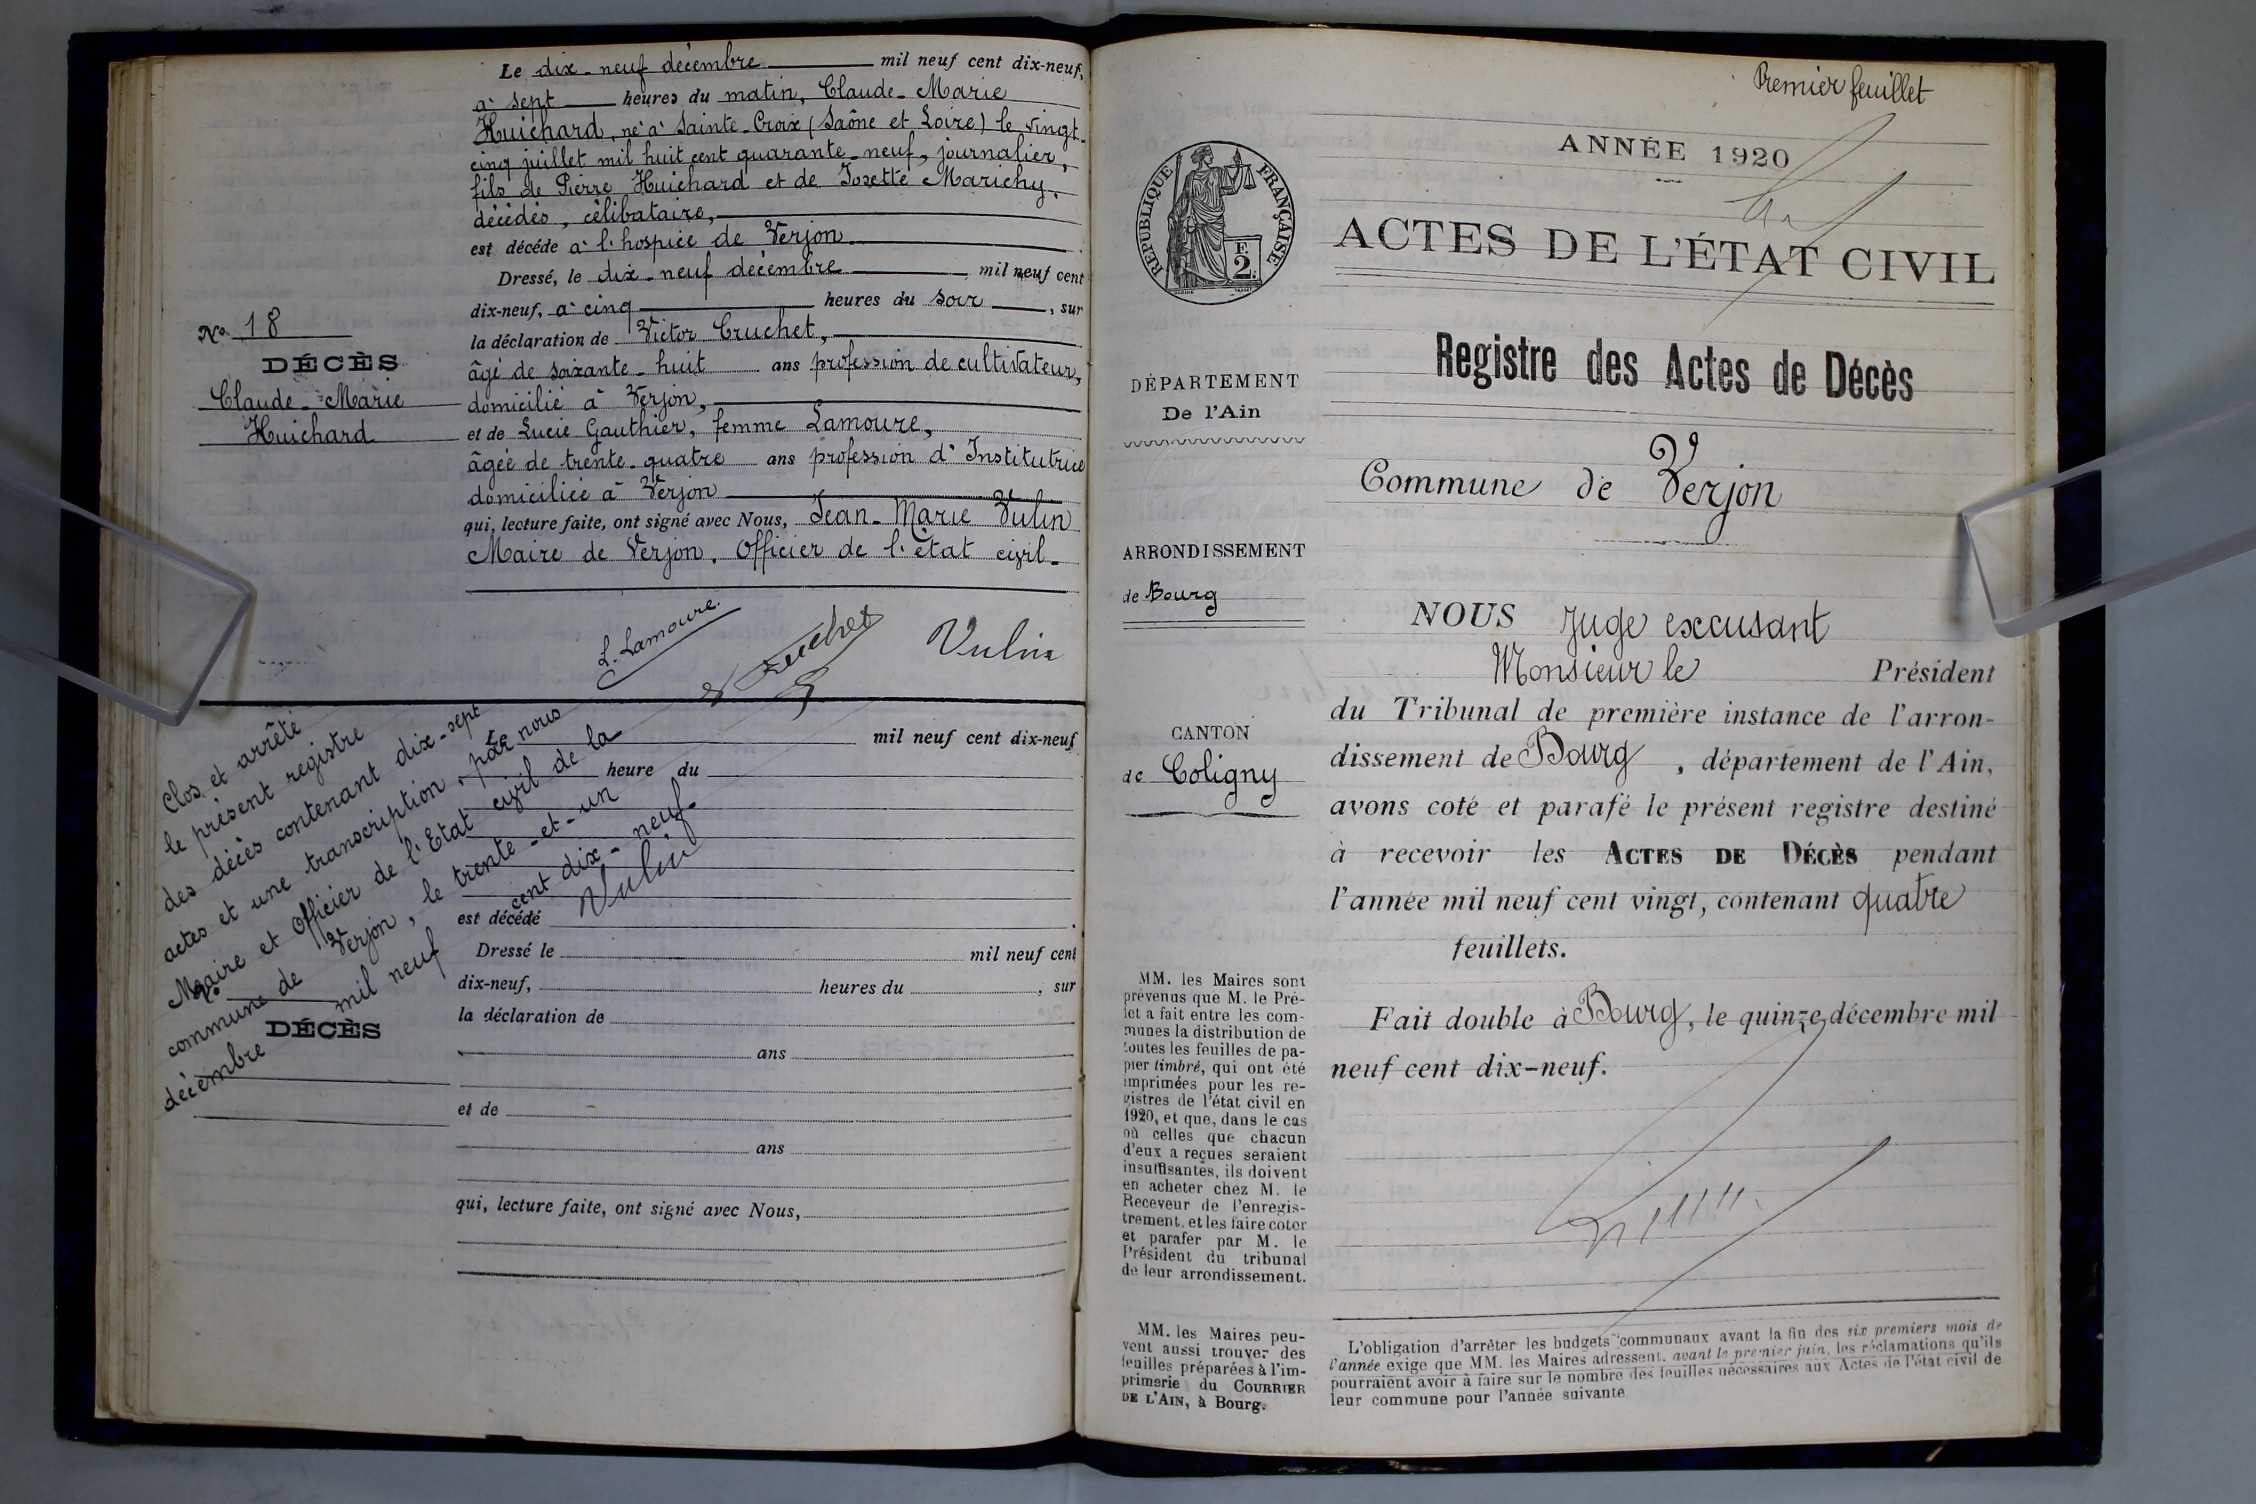 Le dix-neuf décembre mil neuf cent dix-neuf,
à sept heures du matin, Claude-Marie
Huichard, né à Sainte-Croix (Saône et Loire) le vingt-
cinq juillet mil huit cent quarante-neuf, journalier,
fils de Pierre Huichard et de Josette Marichy.
décédés, célibataire,
est décédé à l'hospice de Verjon
Dressé, le dix-neuf décembre mil neuf cent
dix-neuf, à cinq heures du soir, sur
la déclaration de Victor Cruchet,
âgé de soixante-huit ans profession de cultivateur,
domicilié à Verjon,
et de Lucie Gauthier, femme Lamoure,
âgée de trente-quatre ans profession d'Institutrice
domiciliée à Verjon
qui, lecture faite, ont signé avec Nous, Jean-Marie Vulin
Maire de Verjon. Officier de l'état civil-
No 18
DÉCÈS
Claude-Marie
Huichard
L. Lamoure.
Cruchet
Vulin
Clos et arrêté
le présent registre
des décès contenant dix-sept
actes et une transcription, par nous
Maire et Officier de l'Etat civil de la
commune de Verjon, le trente-et-un
décembre mil neuf cent dix-neuf.
Vulin
Le mil neuf cent dix-neuf
heure du
est décédé
Dressé le mil neuf cent
dix-neuf, heures du , sur
la déclaration de
ans
et de
ans
qui, lecture faite, ont signé avec Nous,
No
DÉCÈS
Premier feuillet
ANNÉE 1920
RÉPUBLIQUE FRANÇAISE
2
ACTES DE L'ÉTAT CIVIL
Registre des Actes de Décès
DÉPARTEMENT
De l'Ain
Commune de Verjon
ARRONDISSEMENT
de Bourg
CANTON
de Coligny
NOUS Juge excusant
Monsieur le Président
du Tribunal de première instance de l'arron-
dissement de Bourg, département de l'Ain,
avons coté et parafé le présent registre destiné
à recevoir les ACTES DE DÉCÈS pendant
l'année mil neuf cent vingt, contenant quatre
feuillets.
Fait double à Bourg, le quinze décembre mil
neuf cent dix-neuf.
MM. les Maires sont
prévenus que M. le Pré-
fet a fait entre les com-
munes la distribution de
toutes les feuilles de pa-
pier timbré, qui ont été
imprimées pour les re-
gistres de l'état civil en
1920, et que, dans le cas
où celles que chacun
d'eux a reçues seraient
insuffisantes, ils doivent
en acheter chez M. le
Receveur de l'enregis-
trement, et les faire coter
et parafer par M. le
Président du tribunal
de leur arrondissement.
MM. les Maires peu-
vent aussi trouver des
feuilles préparées à l'im-
primerie du COURRIER
DE L'AIN, à Bourg.
L'obligation d'arrêter les budgets communaux avant la fin des six premiers mois de
l'année exige que MM. les Maires adressent, avant le premier juin, les réclamations qu'ils
pourraient avoir à faire sur le nombre des feuilles nécessaires aux Actes de l'état civil de
leur commune pour l'année suivante